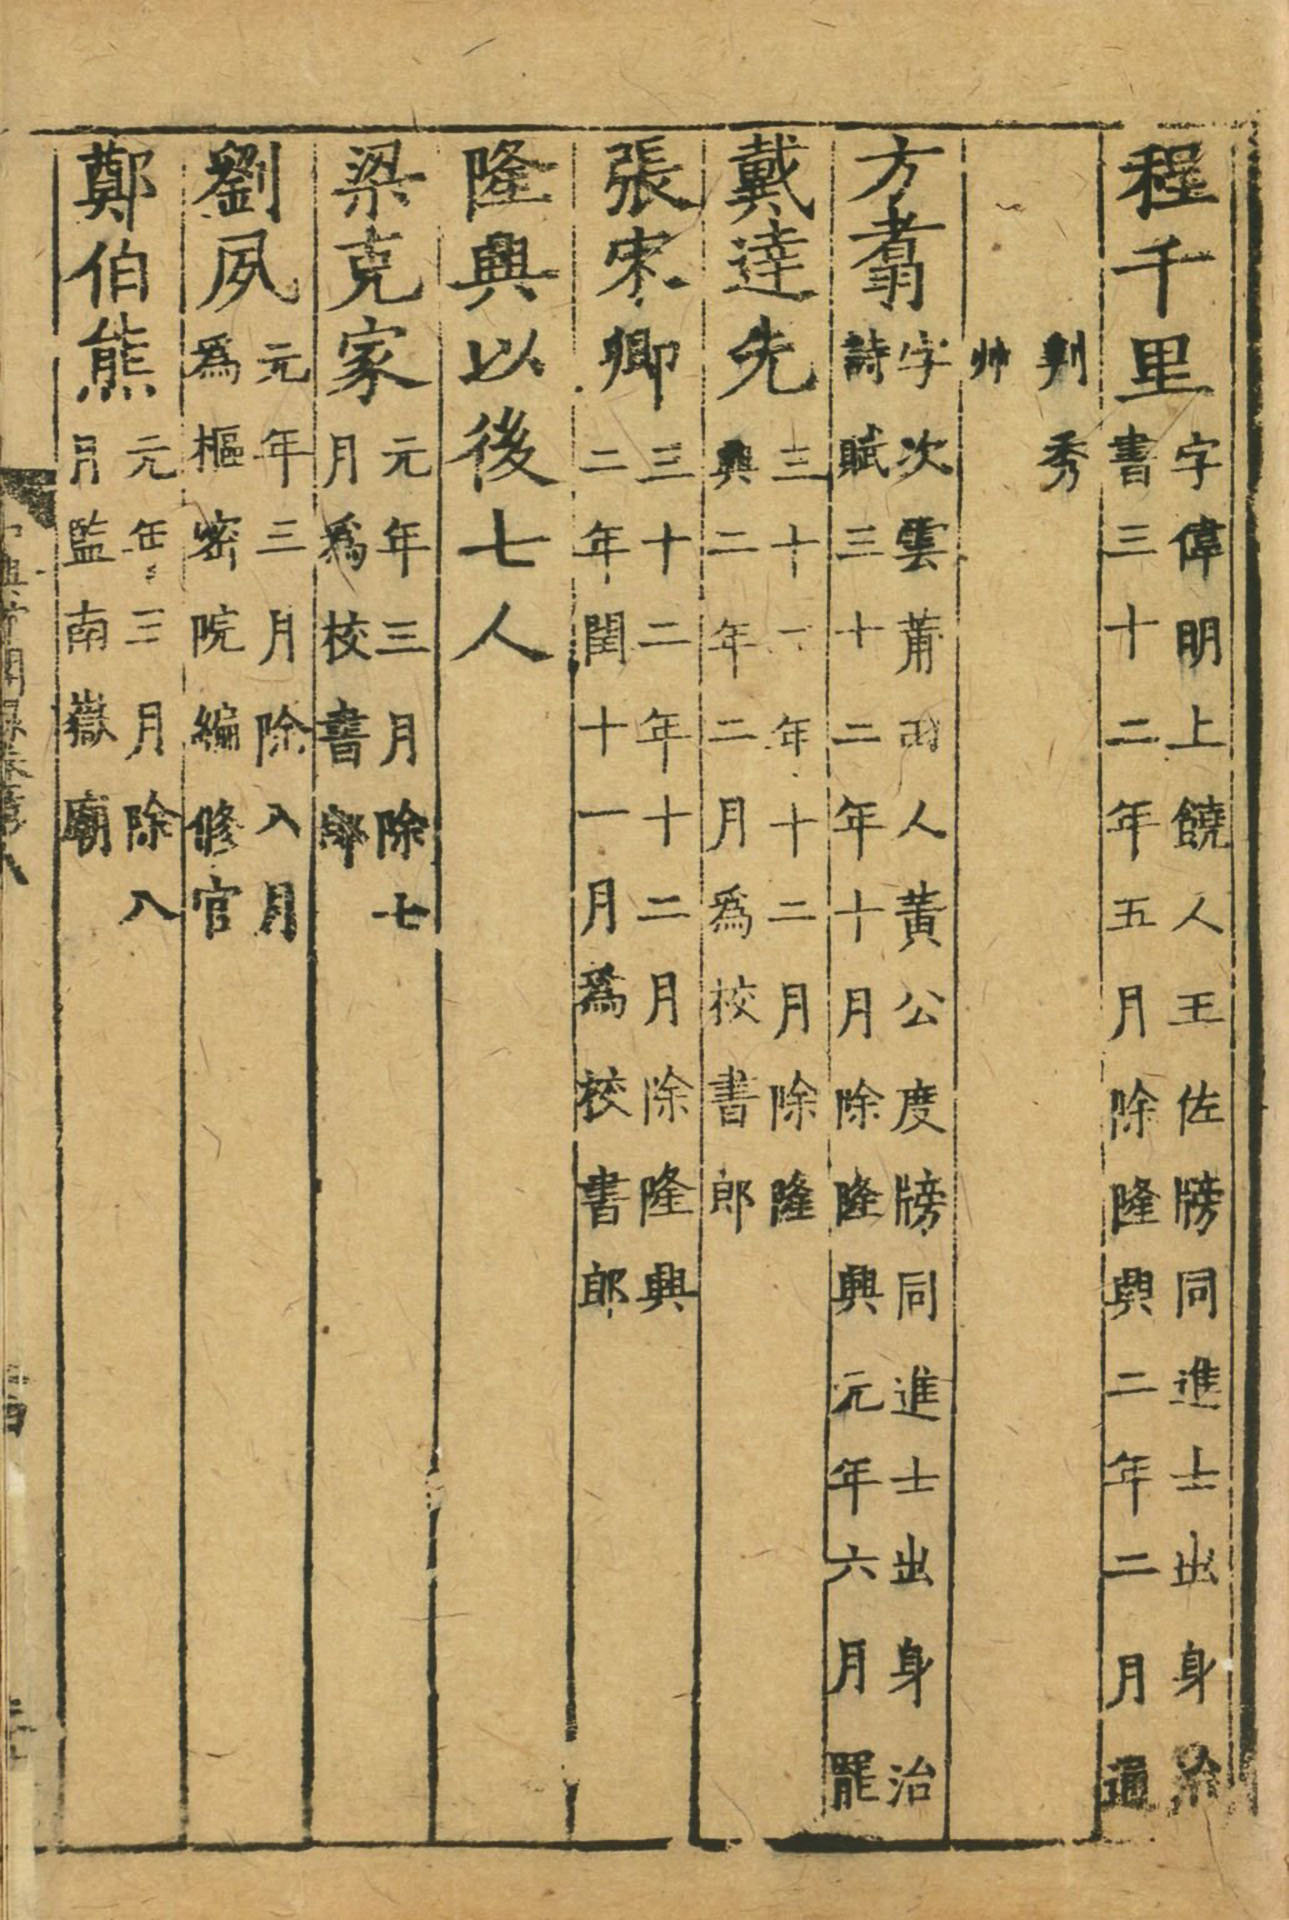 程千里字偉明上饒人王佐牓同進士出身治
書三十二年五月除隆興二年二月通
判秀
州
方翥字次雲莆田人黃公度牓同進士出身治
詩賦三十二年十月除隆興元年六月罷
戴達先三十一年十二月除隆
興二年二月爲校書郎
張宋卿三十二年十二月除隆興
二年閏十一月爲校書郎
隆興以後七人
梁克家元年三月除七
月爲校書郎
劉夙元年三月除八月
爲樞密院編修官
鄭伯熊元年三月除八
月監南嶽廟